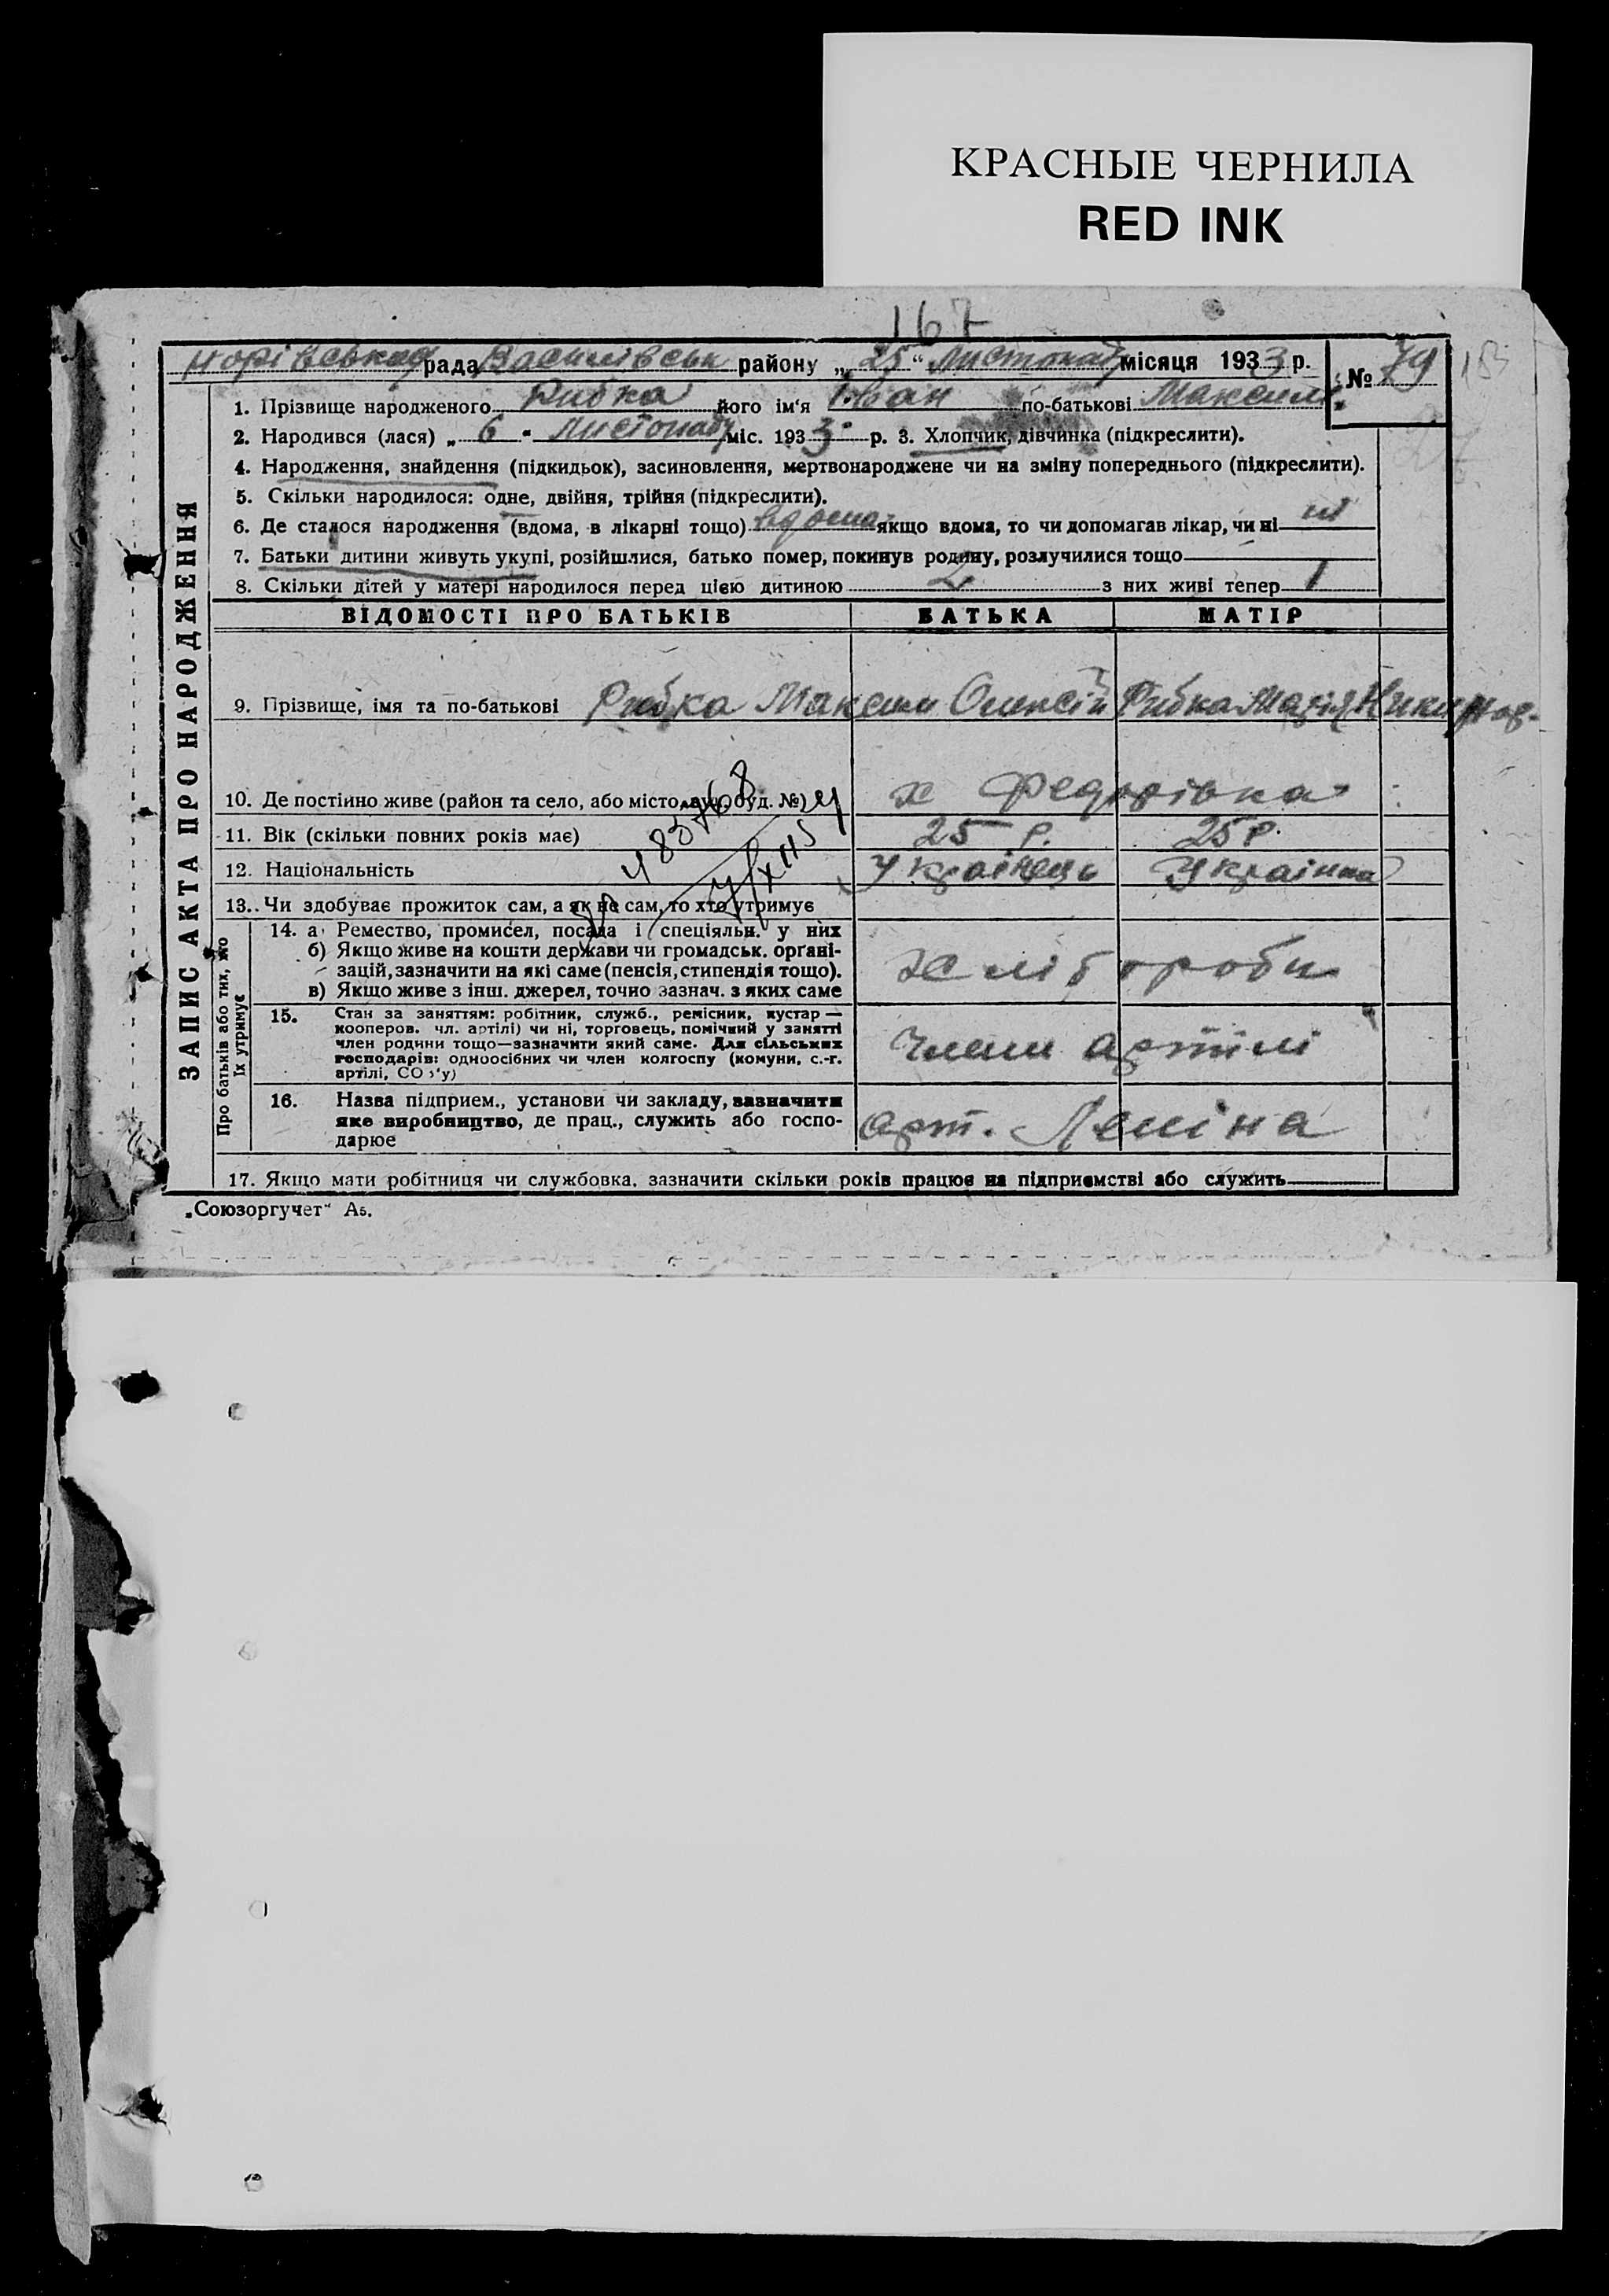 КРАСНЫЕ ЧЕРНИЛА
RED INK
167
рада Василівськ району „ 25 “ Листопад місяця 1933 р. № 79
ЗАПИС АКТА ПРО НАРОДЖЕННЯ
1. Прізвище народженого Рибка його ім'я Іван по-батькові Максим.
2. Народився (лася) „ 6 " Листопаду міс. 1933 р. 3. Хлопчик, дівчинка (підкреслити).
4. Народження, знайдення (підкидьок), засиновлення, мертвонароджене чи на зміну попереднього (підкреслити).
5. Скільки народилося: одне, двійня, трійня (підкреслити).
6. Де сталося народження (вдома, в лікарні тощо) вдома якщо вдома, то чи допомагав лікар, чи ні ні
7. Батьки дитини живуть укупі, розійшлися, батько помер, покинув родину, розлучилися тощо
8. Скільки дітей у матері народилося перед цією дитиною 2 з них живі тепер 1
ВІДОМОСТІ ПРО БАТЬКІВ БАТЬКА МАТІР
9. Прізвище, імя та по-батькові Рибка Максим Олексій Рибка Марія
10. Де постійно живе (район та село, або місто, вул., буд. №) х Федорівка
11. Вік (скільки повних років має) 25 р. 25 р.
12. Національність Українець Українка
13. Чи здобуває прожиток сам, а як не сам, то хто утримує
Про батьків або тих, хто
їх утримує
14. а) Ремество, промисел, посада і спеціяльн. у них
б) Якщо живе на кошти держави чи громадськ. орґані-
зацій, зазначити на які саме (пенсія, стипендія тощо).
в) Якщо живе з інш. джерел, точно зазнач. з яких саме
хлібороби
15. Стан за заняттям: робітник, служб., ремісник, кустар —
кооперов. чл. артілі) чи ні, торговець, помічний у занятті
член родини тощо—зазначити який саме. Для сільських
господарів: одноосібних чи член колгоспу (комуни, с.-г.
артілі, СОЗ'у)
члени артілі
16. Назва підприєм., установи чи закладу, зазначити
яке виробництво, де прац., служить або госпо-
дарює
арт. Леніна
17. Якщо мати робітниця чи службовка, зазначити скільки років працює на підприємстві або служить
„Союзоргучет" А5.